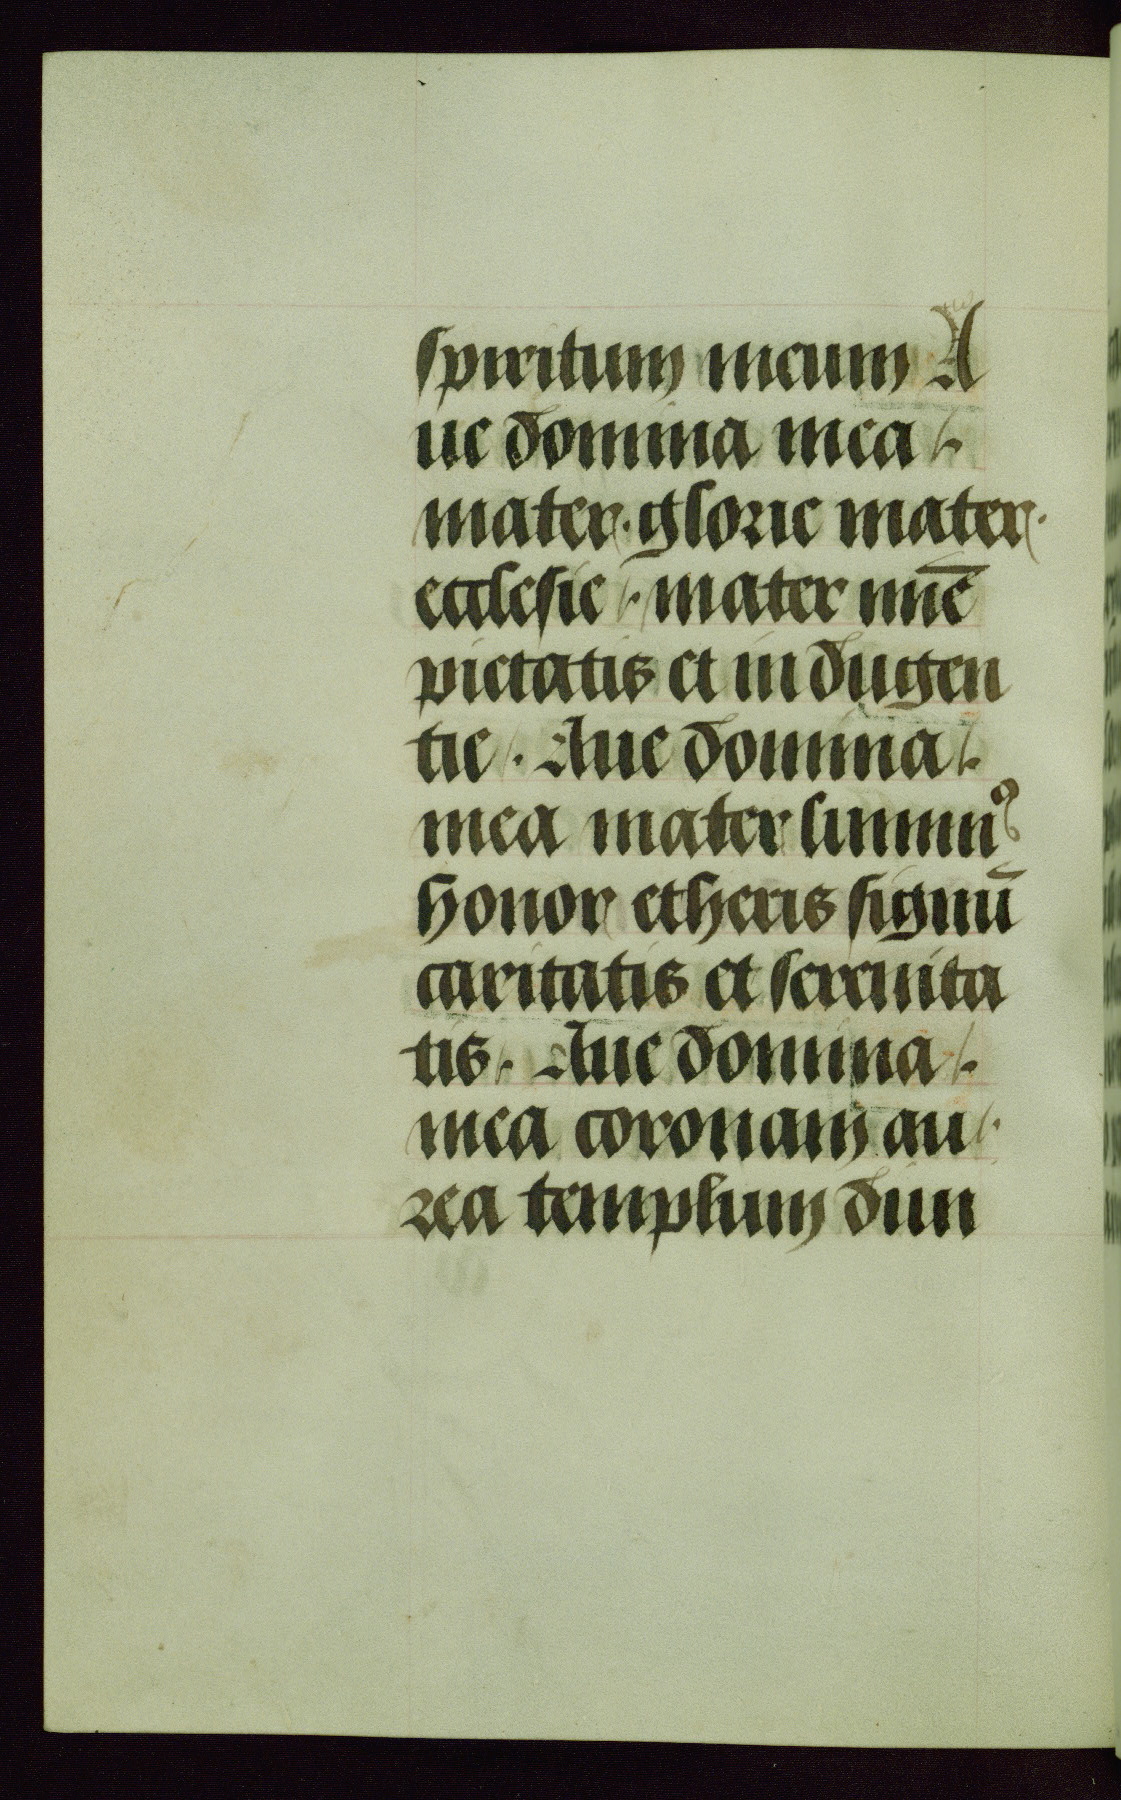 spiritum meum A
ue domina mea /.
mater. glorie mater.
ecclesie /. mater mīē
pietatis et indugen
tie /. Aue domina /.
mea mater summ⁹
honor etheris signū
caritatis et serenita
tis /. Aue domina /.
mea coronam au /.
rea templum diui